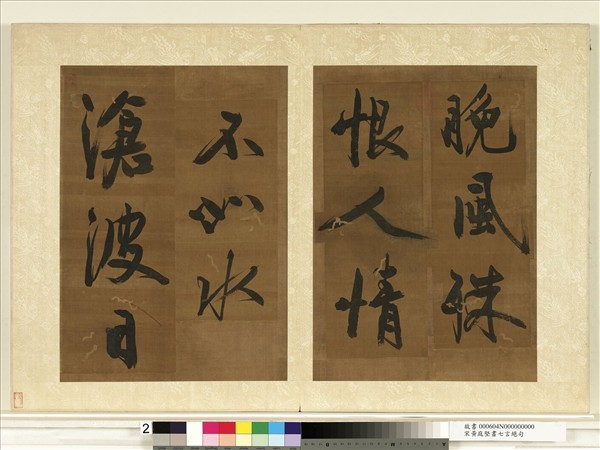 晚風殊
恨人情
不 水
滄波日
2
故書 000604N000000000
宋黃庭堅書七言絕句